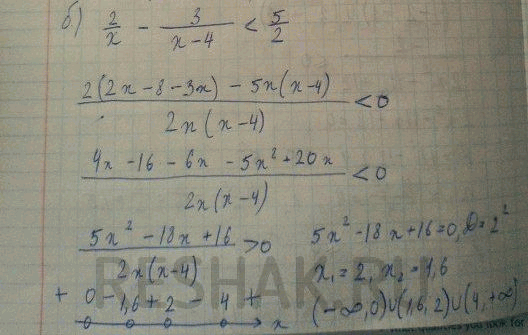 б) 2/x - 3/(x-4) < 5/2
(2(2x-8-3x) - 5x(x-4))/(2x(x-4)) < 0
(4x-16-6x-5x²+20x)/(2x(x-4)) < 0
(5x²-18x+16)/(2x(x-4)) > 0
5x²-18x+16=0, D=2²
x₁=2, x₂=1,6
+ 0 - 1,6 + 2 - 4 + x
(-∞,0)∪(1,6,2)∪(4,+∞)
RESHAK.RU